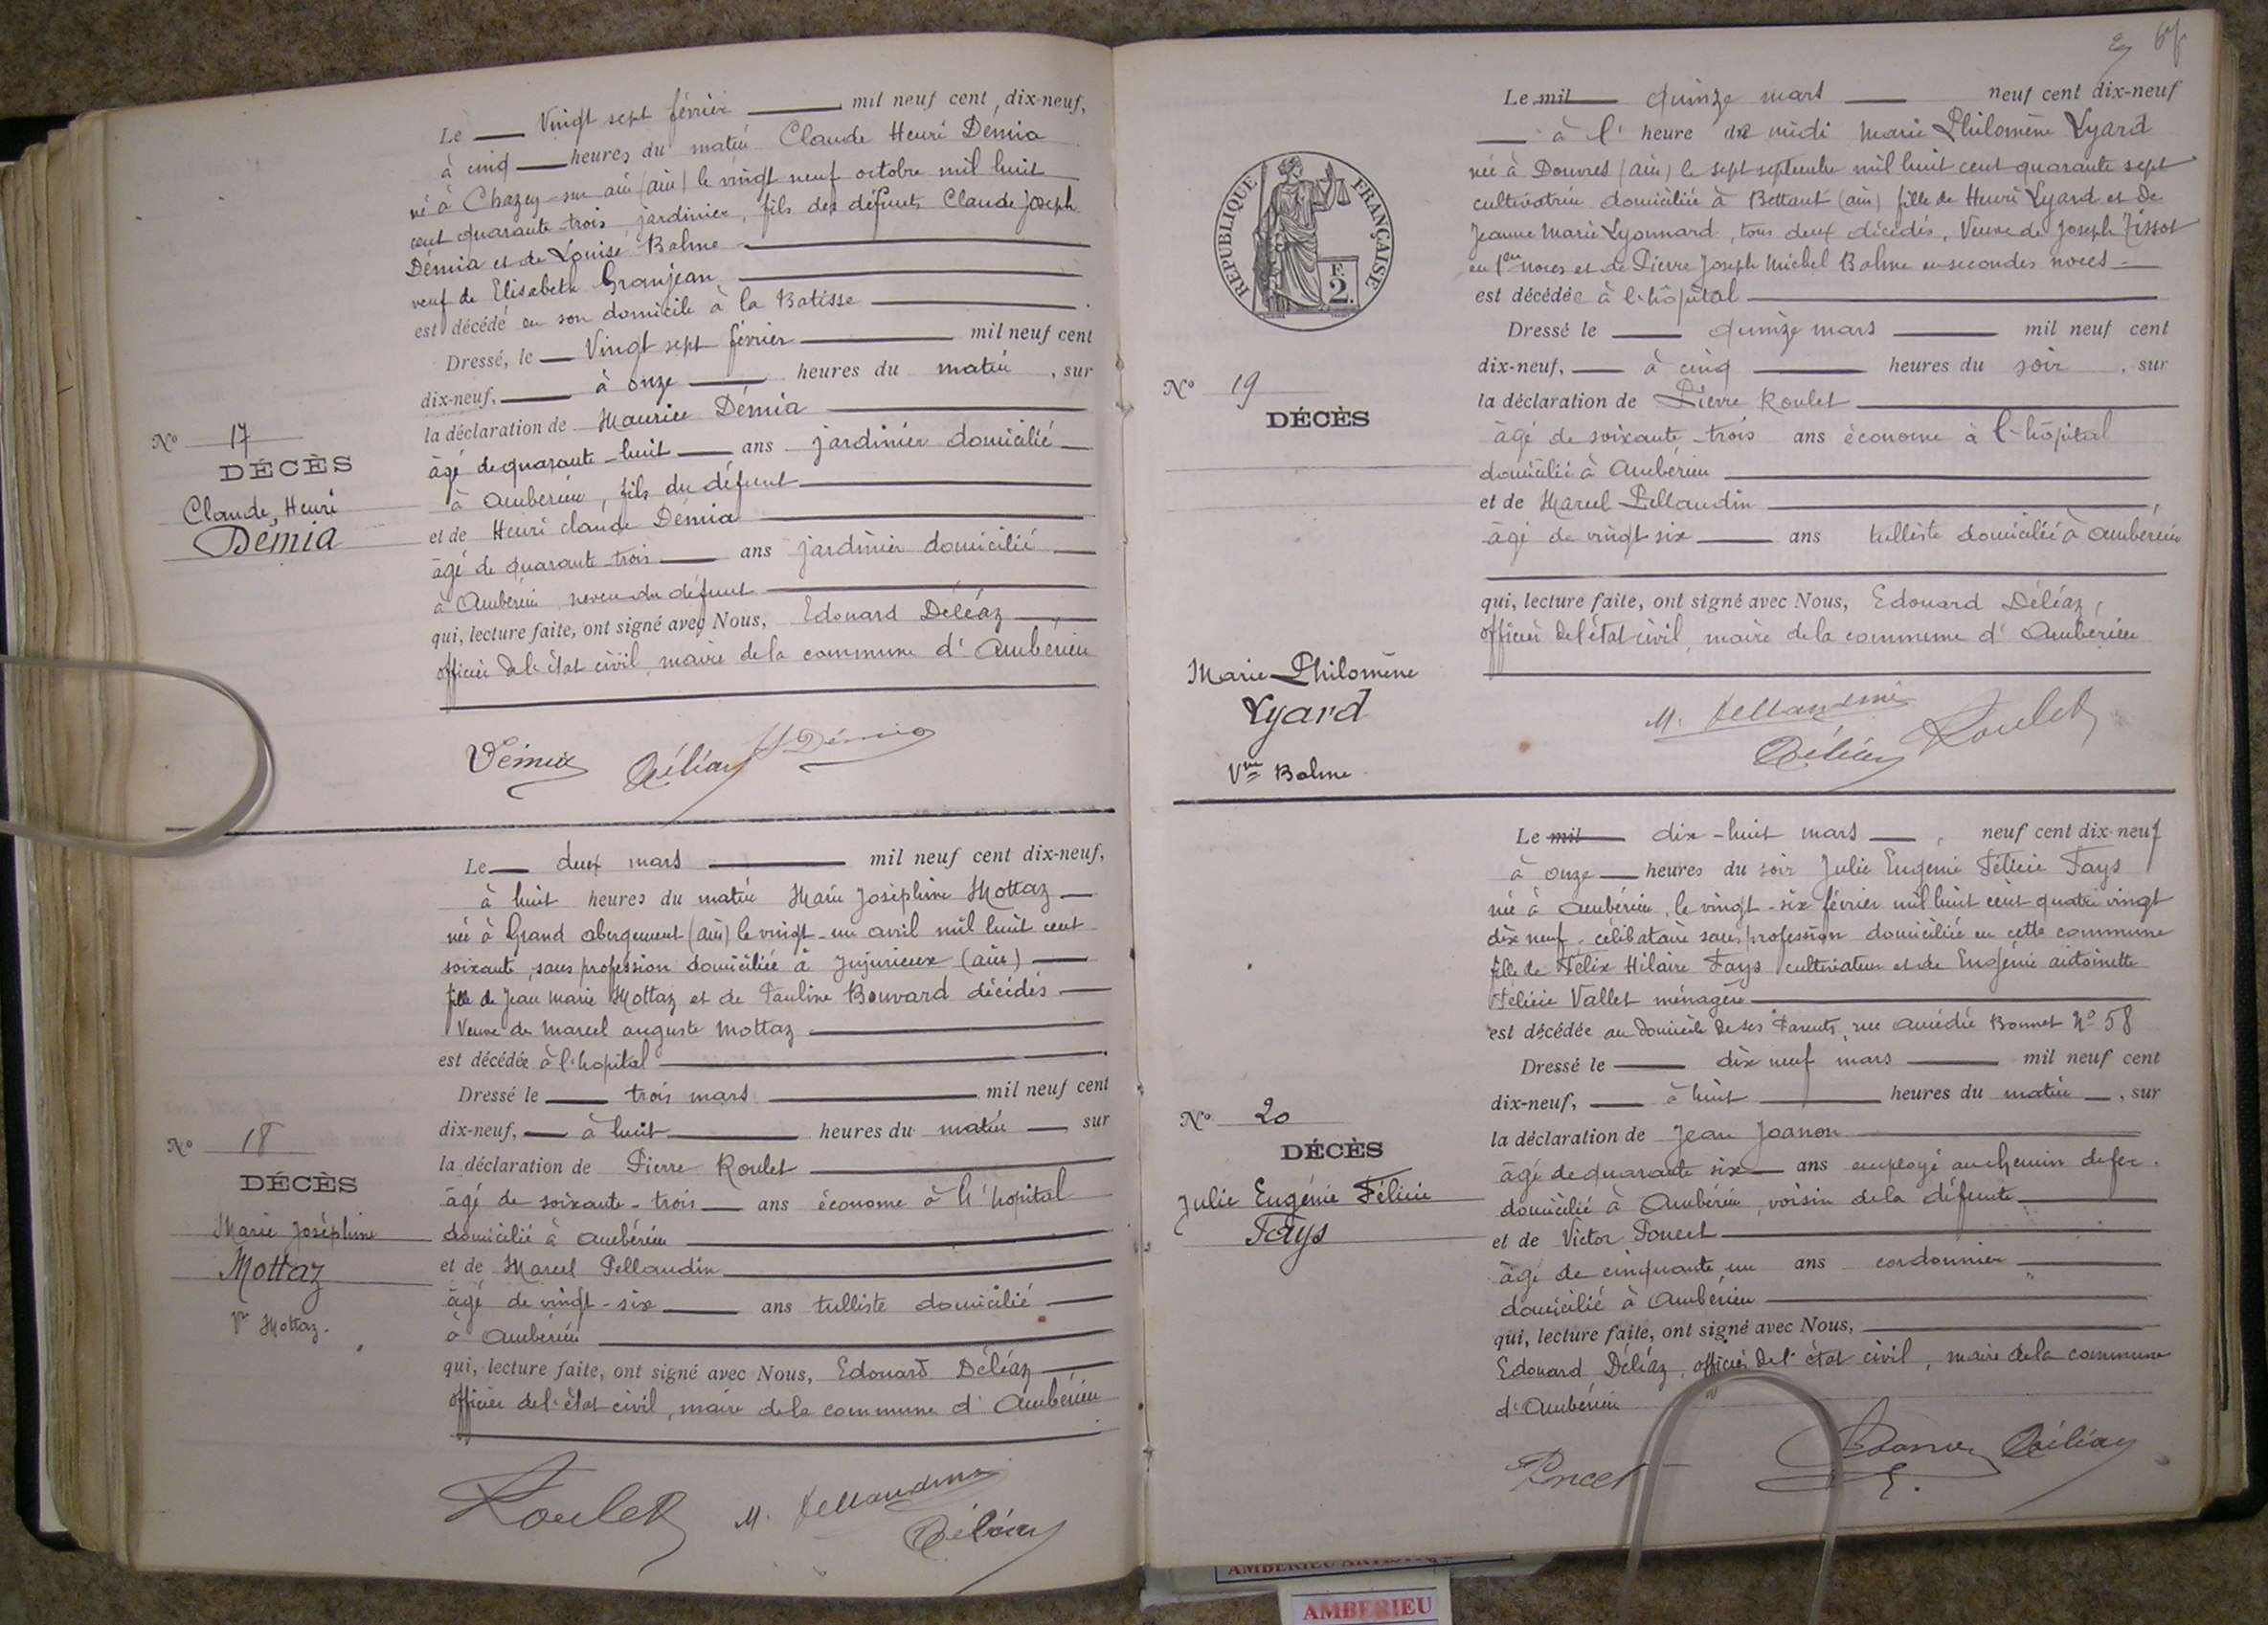 Le Vingt sept février mil neuf cent dix-neuf,
à cinq heures du matin Claude Henri Démia
né à Chazey-sur ain (ain) le vingt neuf octobre mil huit
cent quarante-trois jardinier, fils des défunts Claude Joseph
Démia et de Louise Balme
veuf de Elisabeth Granjean
est décédé en son domicile à la Batisse
Dressé, le Vingt sept février mil neuf cent
dix-neuf, à onze heures du matin, sur
la déclaration de Maurice Démia
âgé de quarante-huit ans jardinier domicilié
à Ambérieu, fils du défunt
et de Henri claude Démia
âgé de quarante-trois ans jardinier domicilié
à Ambérieu neveu du défunt
qui, lecture faite, ont signé avec Nous, Edouard Déléaz
officier de l'état civil, maire de la commune d'Ambérieu
No 17
DÉCÈS
Claude, Henri
Démia
Démia Déléaz H Démia
Le deux mars mil neuf cent dix-neuf,
à huit heures du matin Marie Joséphine Mottaz
née à Grand abergement (ain) le vingt-un avril mil huit cent
soixante, sans profession domiciliée à Jujurieux (ain)
fille de Jean Marie Mottaz et de Pauline Bouvard décédés
Veuve de Marcel auguste Mottaz
est décédée à l'hopital
Dressé le trois mars mil neuf cent
dix-neuf, à huit heures du matin sur
la déclaration de Pierre Roulet
âgé de soixante-trois ans économe à l'hopital
domicilié à ambérieu
et de Marcel Pellaudin
âgé de vingt-six ans tulliste domicilié
à ambérieu
qui, lecture faite, ont signé avec Nous, Edouard Déléaz
officier de l'état civil, maire de la commune d'Ambérieu
No 18
DÉCÈS
Marie Joséphine
Mottaz
Vve Mottaz.
Roulet M. Pellaudin
Déléaz
67
Le mil quinze mars neuf cent dix-neuf
à l'heure de midi Marie Philomène Lyard
née à Douvres (ain) le sept septembre mil huit cent quarante sept
cultivatrice domiciliée à Bettant (ain) fille de Henri Lyard et de
Jeanne Marie Lyonnard, tous deux décédés, Veuve de Joseph Tissot
en 1ères noces et de Pierre Joseph Michel Balme en secondes noces
est décédée à l'hôpital
Dressé le quinze mars mil neuf cent
dix-neuf, à cinq heures du soir, sur
la déclaration de Pierre Roulet
âgé de soixante-trois ans économe à l'hôpital
domicilié à Ambérieu
et de Marcel Pellaudin
âgé de vingt six ans tulliste domicilié à ambérieu
qui, lecture faite, ont signé avec Nous, Edouard Déléaz,
officier de l'état civil, maire de la commune d'Ambérieu
REPUBLIQUE FRANÇAISE
F.
2.
No 19
DÉCÈS
Marie Philomène
Lyard
Vve Balme
M. Pellaudin Roulet
Déléaz
Le mil dix-huit mars neuf cent dix-neuf
à onze heures du soir Julie Eugénie Félicie Fays
née à ambérieu, le vingt-six février mil huit cent quatre vingt
dix neuf, célibataire sans profession domiciliée en cette commune
fille de Félix Hilaire Fays cultivateur et de Eugénie antoinette
Félicie Vallet ménagère
est décédée au domicile de ses Parents, rue amédée Bonnet No 58
Dressé le dix neuf mars mil neuf cent
dix-neuf, à huit heures du matin, sur
la déclaration de Jean Joanon
âgé de quarante six ans employé au chemin de fer.
domicilié à Ambérieu, voisin de la défunte
et de Victor Poncet
âgé de cinquante un ans cordonnier
domicilié à Ambérieu
qui, lecture faite, ont signé avec Nous,
Edouard Déléaz, officier de l'état civil, maire de la commune
d'Ambérieu
No 20
DÉCÈS
Julie Eugénie Félicie
Fays
Poncet Joanon Déléaz
AMBERIEU